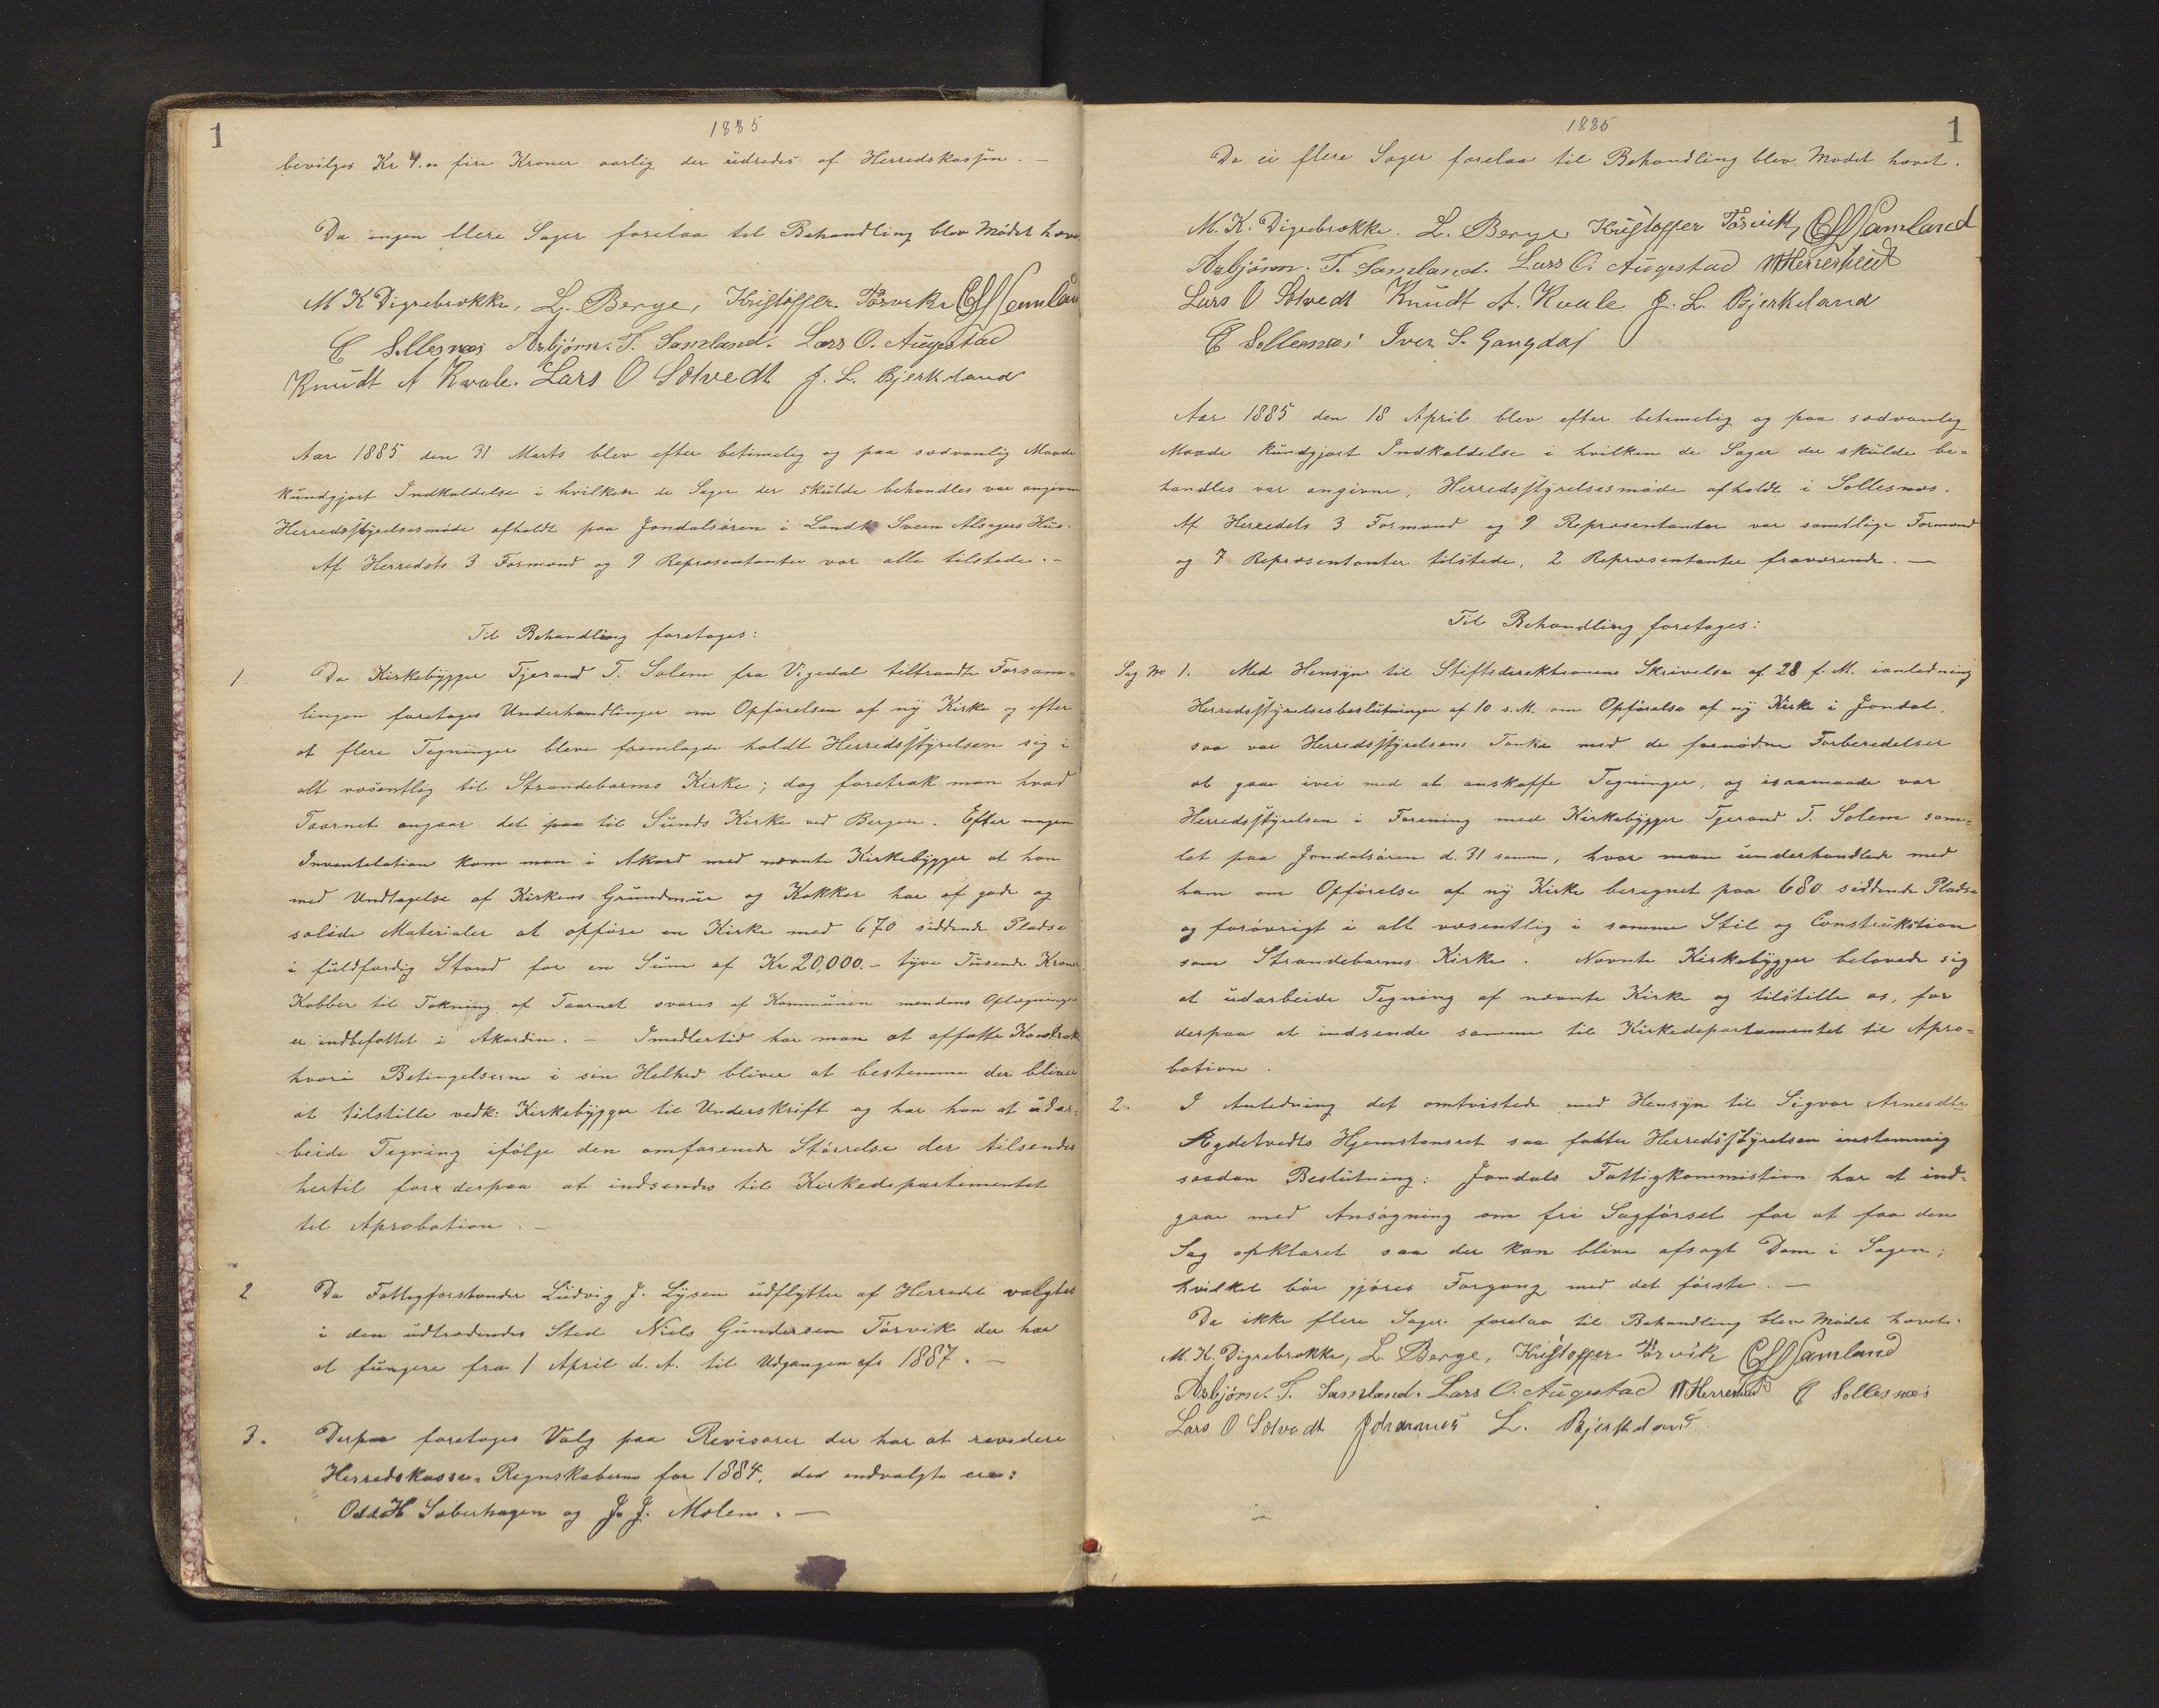 1
1885
bevilges Kr 4.00 fire Kroner aarlig der udredes af Herredskassen. —
Da ingen flere Sager forelaa til Behandling blev Mödet hæve
M K Digrebrokke, L. Berge, Kristoffer Törvik, Samland
Sollesnes Asbjörn. T. Samland. Lars O. Augestad
Knudt A Kvale. Lars O Solvedt J. L. Bjerkeland
Aar 1885 den 31 Marts blev efter betimelig og paa sædvanlig Maade
kundgjort Indkaldelse i hvilken de Sager der skulde behandles var angivne
Herredsstyrelsesmöde afholdt paa Jondalsören i Landh Sveen Alsagers Hus.
Af Herredets 3 Formænd og 9 Repræsentanter var alle tilstede. —
Til Behandling foretoges:
1. Da Kirkebygger Tjerand T. Solem fra Vigedal tiltraadte Forsam=
lingen foretoges Underhandlinger om Opförelsen af ny Kirke og efter
at flere Tegninger bleve fremlagde holdt Herredsstyrelsen sig i
alt væsentlig til Strandebarms Kirke; dog foretrak man hvad
Taarnet angaar det paa til Sunds Kirke ved Bergen. Efter nogen
kom man i Akord med nævnte Kirkebygger at han
med Undtagelse af Kirkens Grundmur og Kakker har af gode og
solide Materialer at opföre en Kirke med 670 siddende Pladse
i fuldfærdig Stand for en Sum af Kr 20,000.- tyve Tusende Kroner.
Kobber til Tækning af Taarnet svares af Kommunen mendens Oplægningen
er indbefattet i Akorden. — Imedlertid har man at affatte Kontrak
hvori Betingelserne i sin Helhed bliver at bestemme der bliver
at tilstille vedk: Kirkebygger til Underskrift og har han at udar=
beide Tegning ifölge den omforenede Störrelse der tilsendes
hertil for derpaa at indsendes til Kirkedepartementet
til Aprobation. —
2 Da Fattigforstander Ludvig J. Lysen udflytter af Herredet valgtes
i den udtrædendes Sted Niels Gundersen Törvik der har
at fungere fra 1 April d. A. til Udgangen af 1887. —
3. Derpaa foretoges Valg paa Revisorer der har at revidere
Herredskasse-Regnskaberne for 1884, dertil indvalgte ere:
Odd H Saberhagen og J. J. Molem. —
1
1885
Da ei flere Sager forelaa til Behandling blev Mödet hævet.
M. K. Digrebrokke. L. Berge Kristoffer Törvik, Samland
Asbjörn. T. Samland. Lars O. Augestad Herreheid
Lars O Solvedt Knudt A. Kvale J. L. Bjerkeland
Sollesnes Iver S. Gangdal
Aar 1885 den 18 April blev efter betimelig og paa sædvanlig
Maade kundgjort Indkaldelse i hvilken de Sager der skulde be=
handles var angivne, Herredsstyrelsesmöde afholdt i Sollesnes.
Af Herredets 3 Formænd og 9 Repræsentanter var samtlige Formænd
og 7 Repræsentanter tilstede, 2 Repræsentanter fraværende. —
Til Behandling foretoges:
Sag No 1. Med Hensyn til Stiftsdirektionens Skrivelse af 28 f. M. ianledning
Herredsstyrelsesbeslutningen af 10 s. M. om Opförelse af ny Kirke i Jondal,
saa var Herredsstyrelsens Tanke med de fornödne Forberedelser
at gaa ivei med at anskaffe Tegninger, og isaamaade var
Herredsstyrelsen i Forening med Kirkebygger Tjerand T. Solem sam=
let paa Jondalsören d. 31 samme, hvor man underhandlede med
ham om Opförelse af ny Kirke beregnet paa 680 siddende Pladse
og forövrigt i alt væsentlig i samme Stil og Construktion
som Strandebarms Kirke. Nævnte Kirkebygger belovede sig
at udarbeide Tegning af nævnte Kirke og tilstille os, for
derpaa at indsende samme til Kirkedepartementet til Apro=
bation.
2. I Anledning det omtvistede med Hensyn til Sigvor Arnesdtr
Hjemstavnsret saa fatter Herredsstyrelsen enstemmig
saadan Beslutning: Jondals Fattigkommistion har at ind=
gaa med Ansögning om fri Sagförsel for at faa den
Sag opklaret saa der kan blive afsagt Dom i Sagen;
hvilket bör gjöres Forgang med det förste. —
Da ikke flere Sager forelaa til Behandling blev Mödet hævet.
M. K. Digrebrokke, L. Berge, Kristoffer Törvik Samland
Asbjörn. T. Samland. Lars O. Augestad Herreheid Sollesnes
Lars O Solvedt Johannes L. Bjerkeland